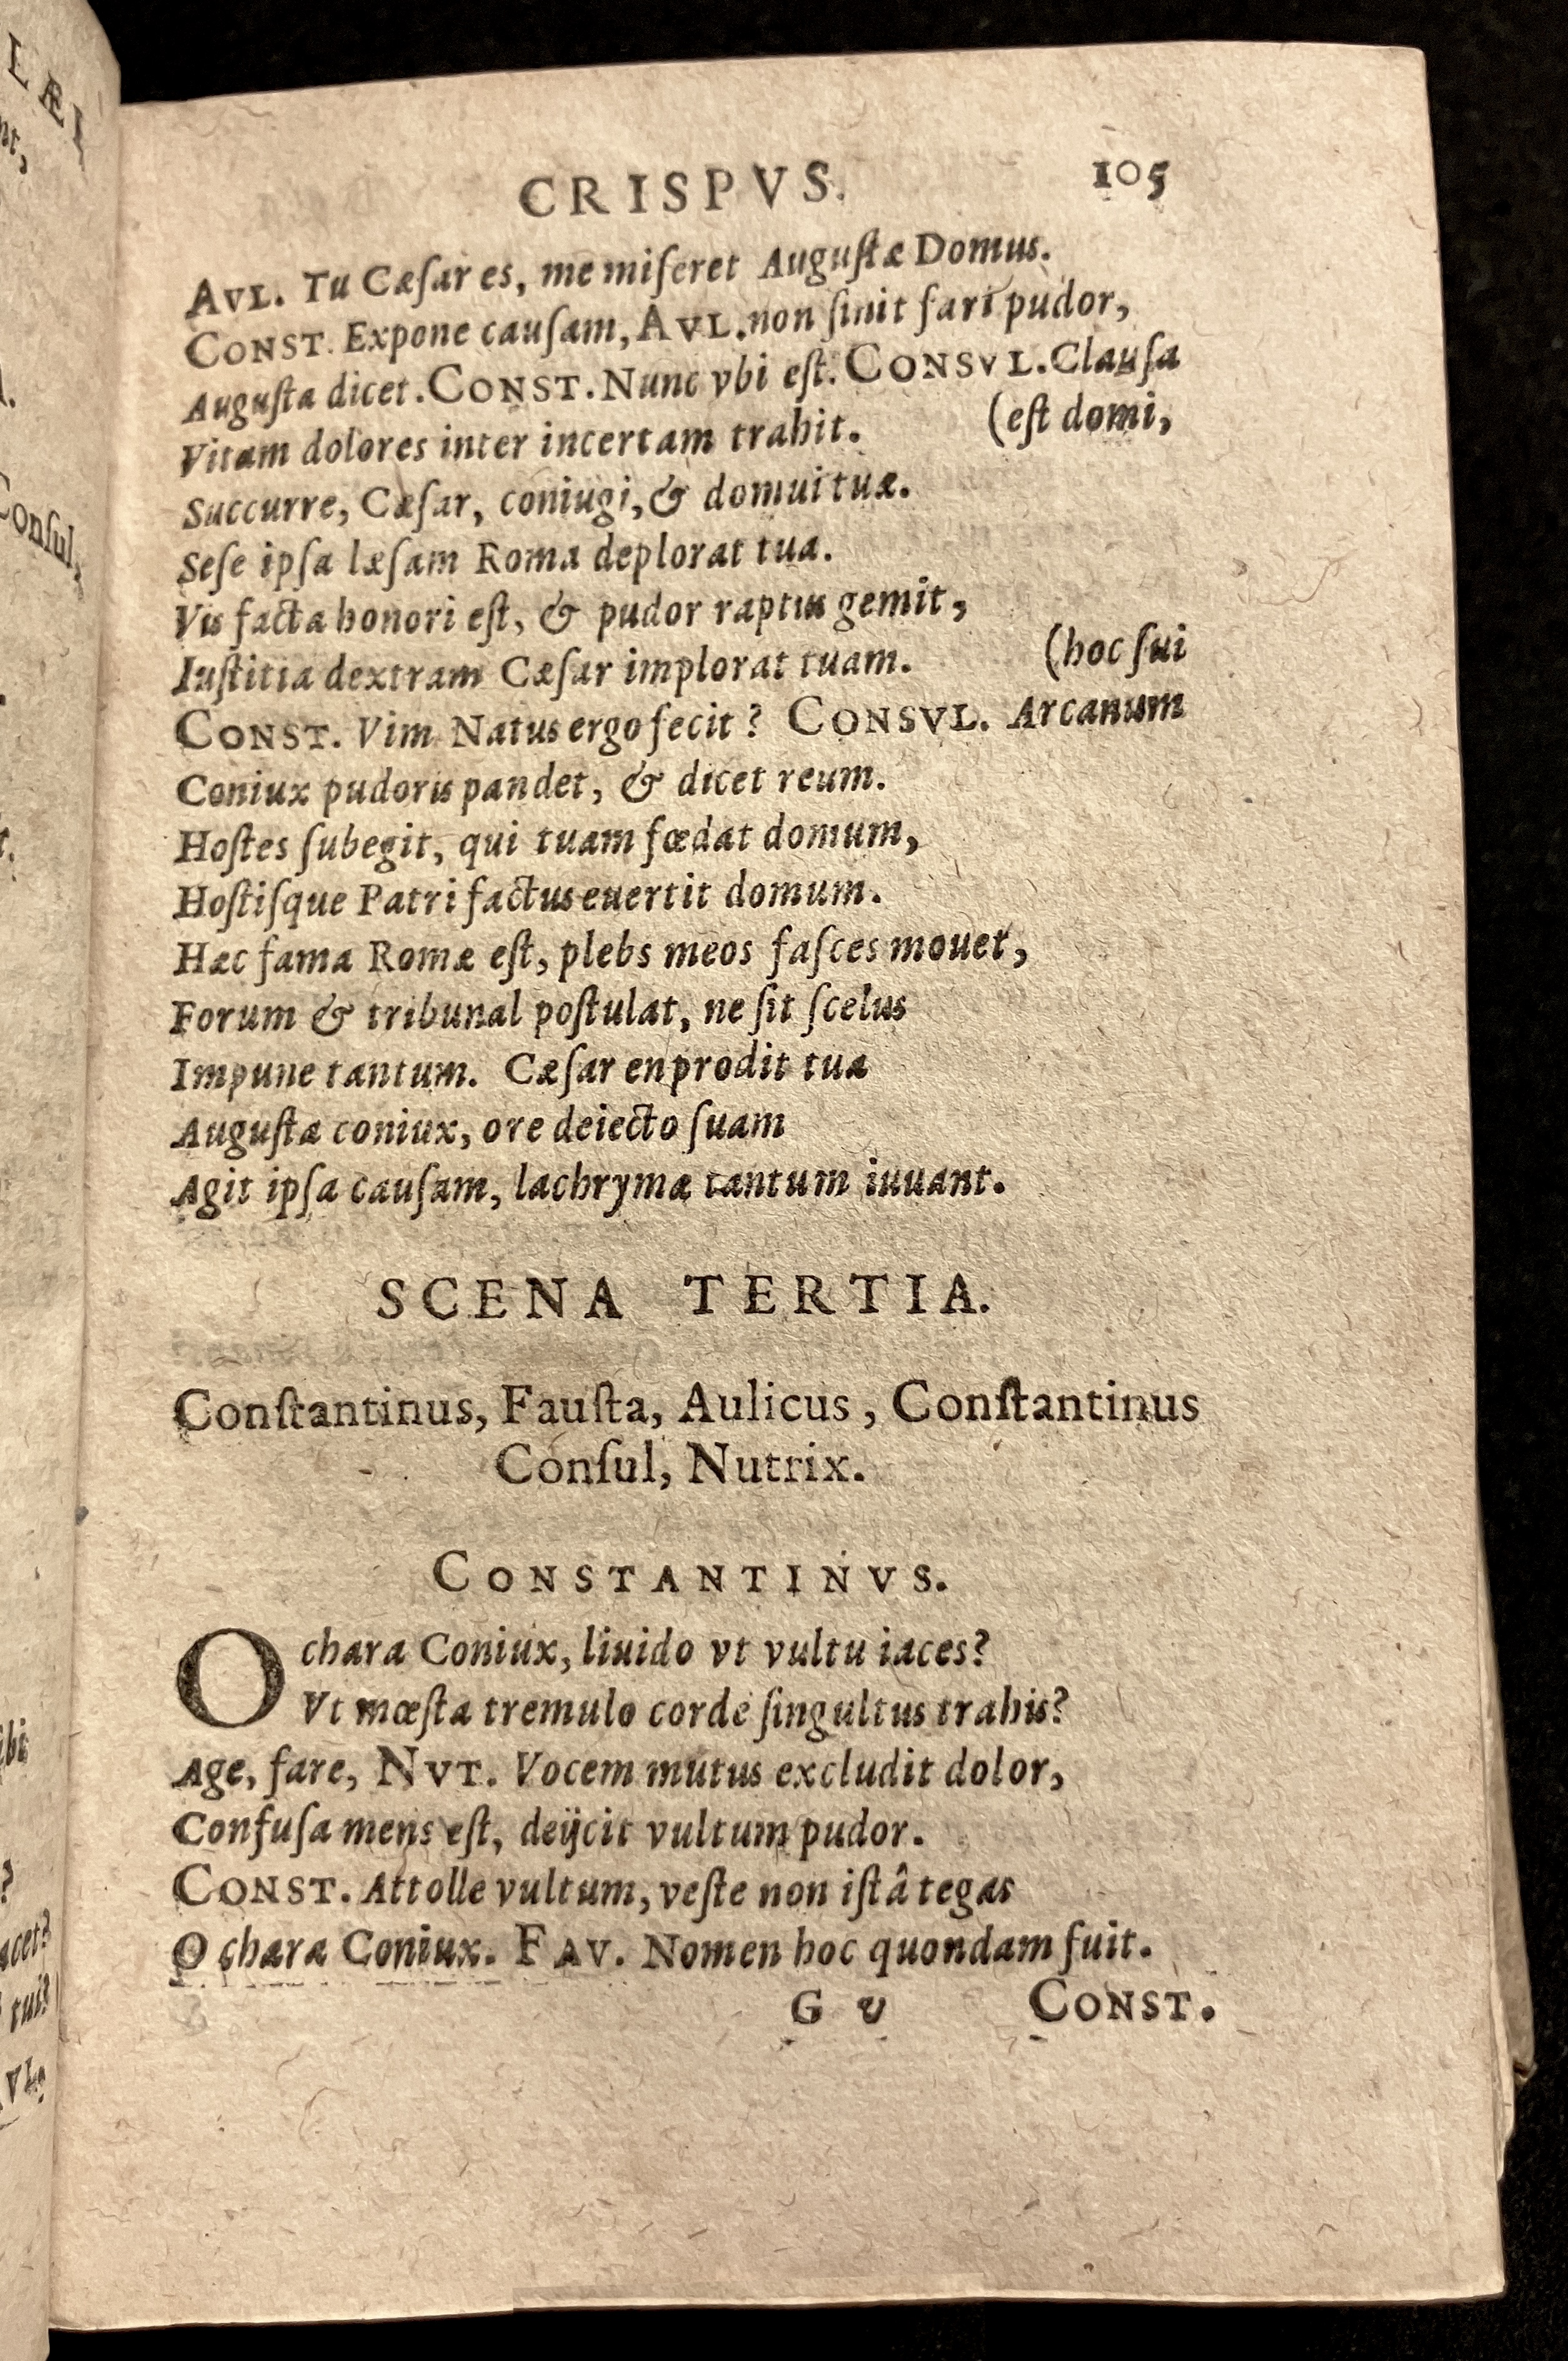 CRISPVS. 105
AVL. Tu Cæſar es, me miſeret Auguſtæ Domus.
CONST. Expone cauſam, AVL. non ſinit fari pudor,
Auguſta dicet. CONST. Nunc vbi eſt. CONSVL. Clauſa
Vitam dolores inter incertam trahit. (eſt domi,
Succurre, Cæſar, coniugi, & domui tuæ.
Seſe ipſa læſam Roma deplorat tua.
Vis facta honori eſt, & pudor raptus gemit,
Iuſtitia dextram Cæſar implorat tuam. (hoc ſui
CONST. Vim Natus ergo fecit? CONSVL. Arcanum
Coniux pudoris pandet, & dicet reum.
Hoſtes ſubegit, qui tuam fœdat domum,
Hoſtiſque Patri factus euertit domum.
Hæc fama Romæ eſt, plebs meos faſces mouet,
Forum & tribunal poſtulat, ne ſit ſcelus
Impune tantum. Cæſar en prodit tua
Auguſta coniux, ore deiecto ſuam
Agit ipſa cauſam, lachrymæ tantum iuuant.
SCENA TERTIA.
Conſtantinus, Fauſta, Aulicus, Conſtantinus
Conſul, Nutrix.
CONSTANTINVS.
O chara Coniux, liuido vt vultu iaces?
Vt mœſta tremulo corde ſingultus trahis?
Age, fare, NVT. Vocem mutus excludit dolor,
Confuſa mens eſt, deijcit vultum pudor.
CONST. Attolle vultum, veſte non iſtâ tegas
O chara Coniux. FAV. Nomen hoc quondam fuit.
G v CONST.